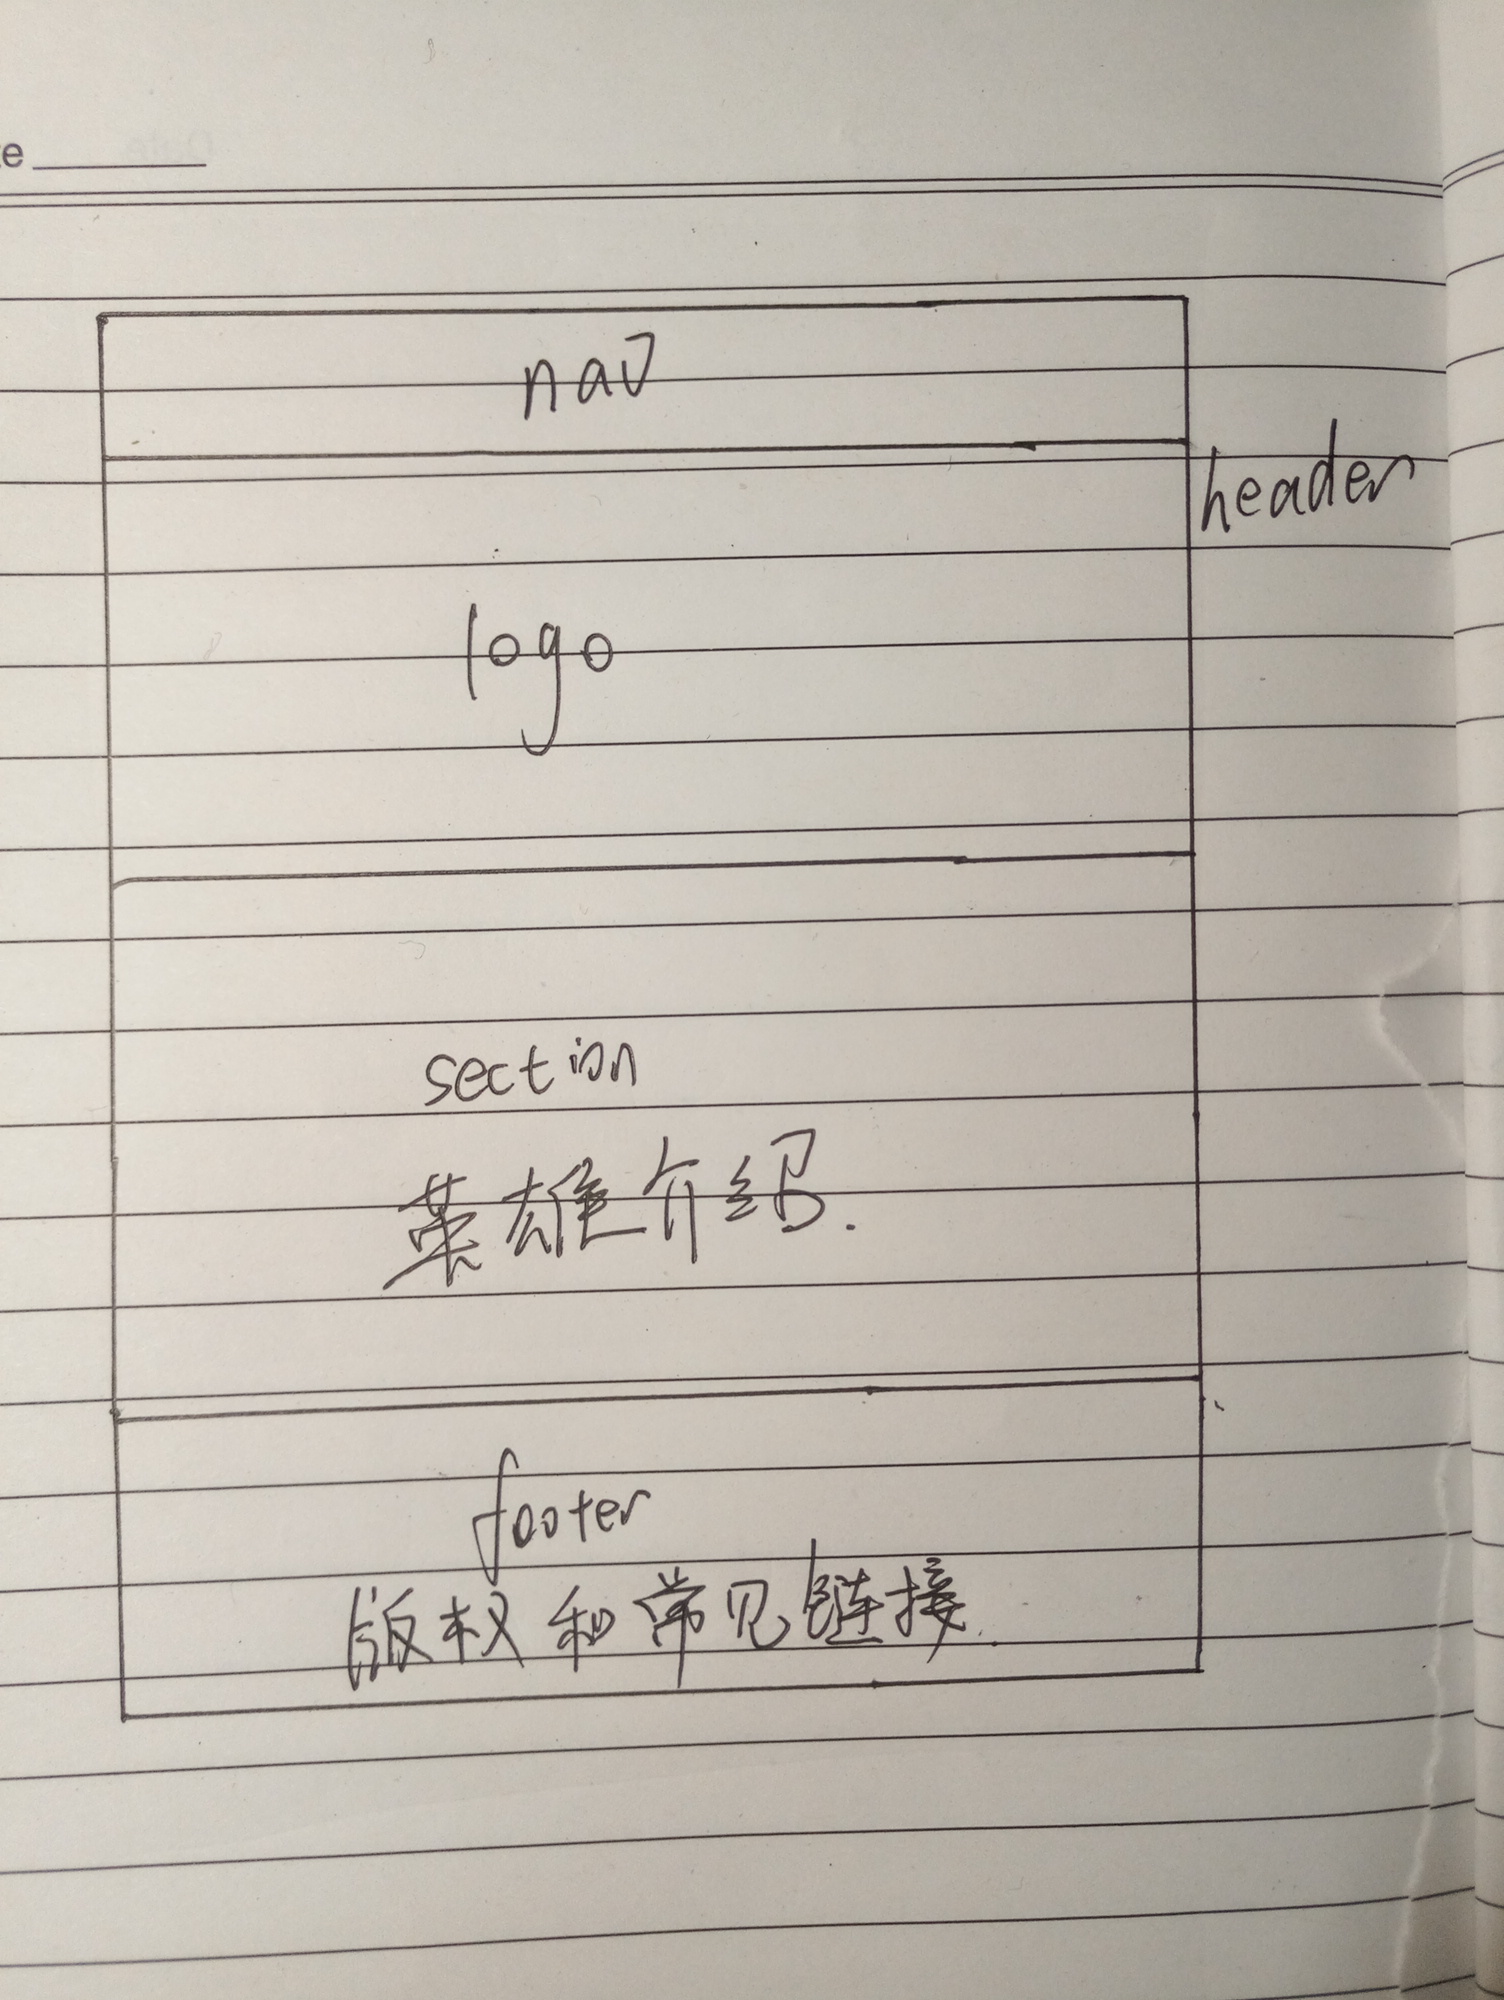 nav
header
logo
section
英雄介绍.
footer
版权和常见链接.